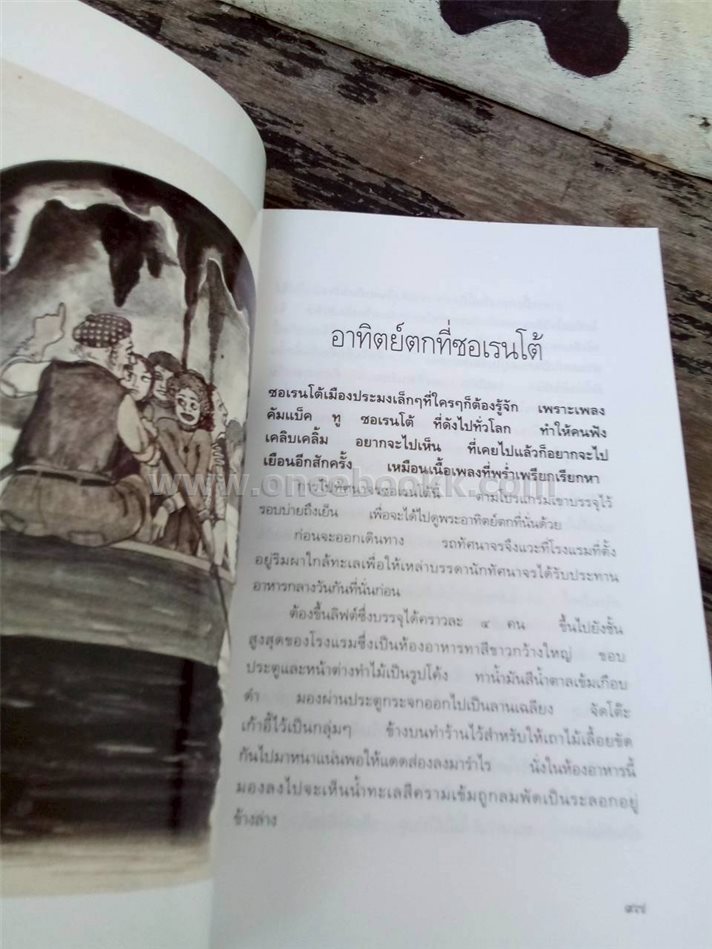 อาทิตย์ตกที่ซอเรนโต้
ซอเรนโต้เมืองประมงเล็กๆที่ใครๆก็ต้องรู้จัก เพราะเพลง
คัมแบ็ค ทู ซอเรนโต้ ที่ดังไปทั่วโลก ทำให้คนฟัง
เคลิบเคลิ้ม อยากจะไปเห็น ที่เคยไปแล้วก็อยากจะไป
เยือนอีกสักครั้ง เหมือนเนื้อเพลงที่พร่ำเพรียกเรียกหา
www.oncebookk.com
การไปทัศนาจรซอเรนโต้นี้ ตามโปรแกรมเขาบรรจุไว้
รอบบ่ายถึงเย็น เพื่อจะได้ไปดูพระอาทิตย์ตกที่นั่นด้วย
ก่อนจะออกเดินทาง รถทัศนาจรจึงแวะที่โรงแรมที่ตั้ง
อยู่ริมผาใกล้ทะเลเพื่อให้เหล่าบรรดานักทัศนาจรได้รับประทาน
อาหารกลางวันกันที่นั่นก่อน
ต้องขึ้นลิฟต์ซึ่งบรรจุได้คราวละ ๔ คน ขึ้นไปยังชั้น
สูงสุดของโรงแรมซึ่งเป็นห้องอาหารทาสีขาวกว้างใหญ่ ขอบ
ประตูและหน้าต่างทำไม้เป็นรูปโค้ง ทาน้ำมันสีน้ำตาลเข้มเกือบ
ดำ มองผ่านประตูกระจกออกไปเป็นลานเฉลียง จัดโต๊ะ
เก้าอี้ไว้เป็นกลุ่มๆ ข้างบนทำร้านไว้สำหรับให้เถาไม้เลื้อยขัด
กันไปมาหนาแน่นพอให้แดดส่องลงมารำไร นั่งในห้องอาหารนี้
มองลงไปจะเห็นน้ำทะเลสีครามเข้มถูกลมพัดเป็นระลอกอยู่
ข้างล่าง